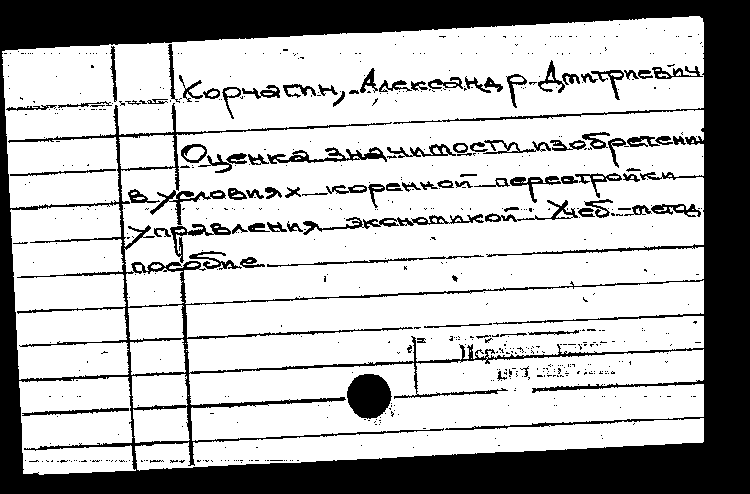 Корчагин, Александр Дмитриевич
Оценка значимости изобретений
в условиях коренной перестройки
управления экономикой: Учеб.-метод.
пособие.